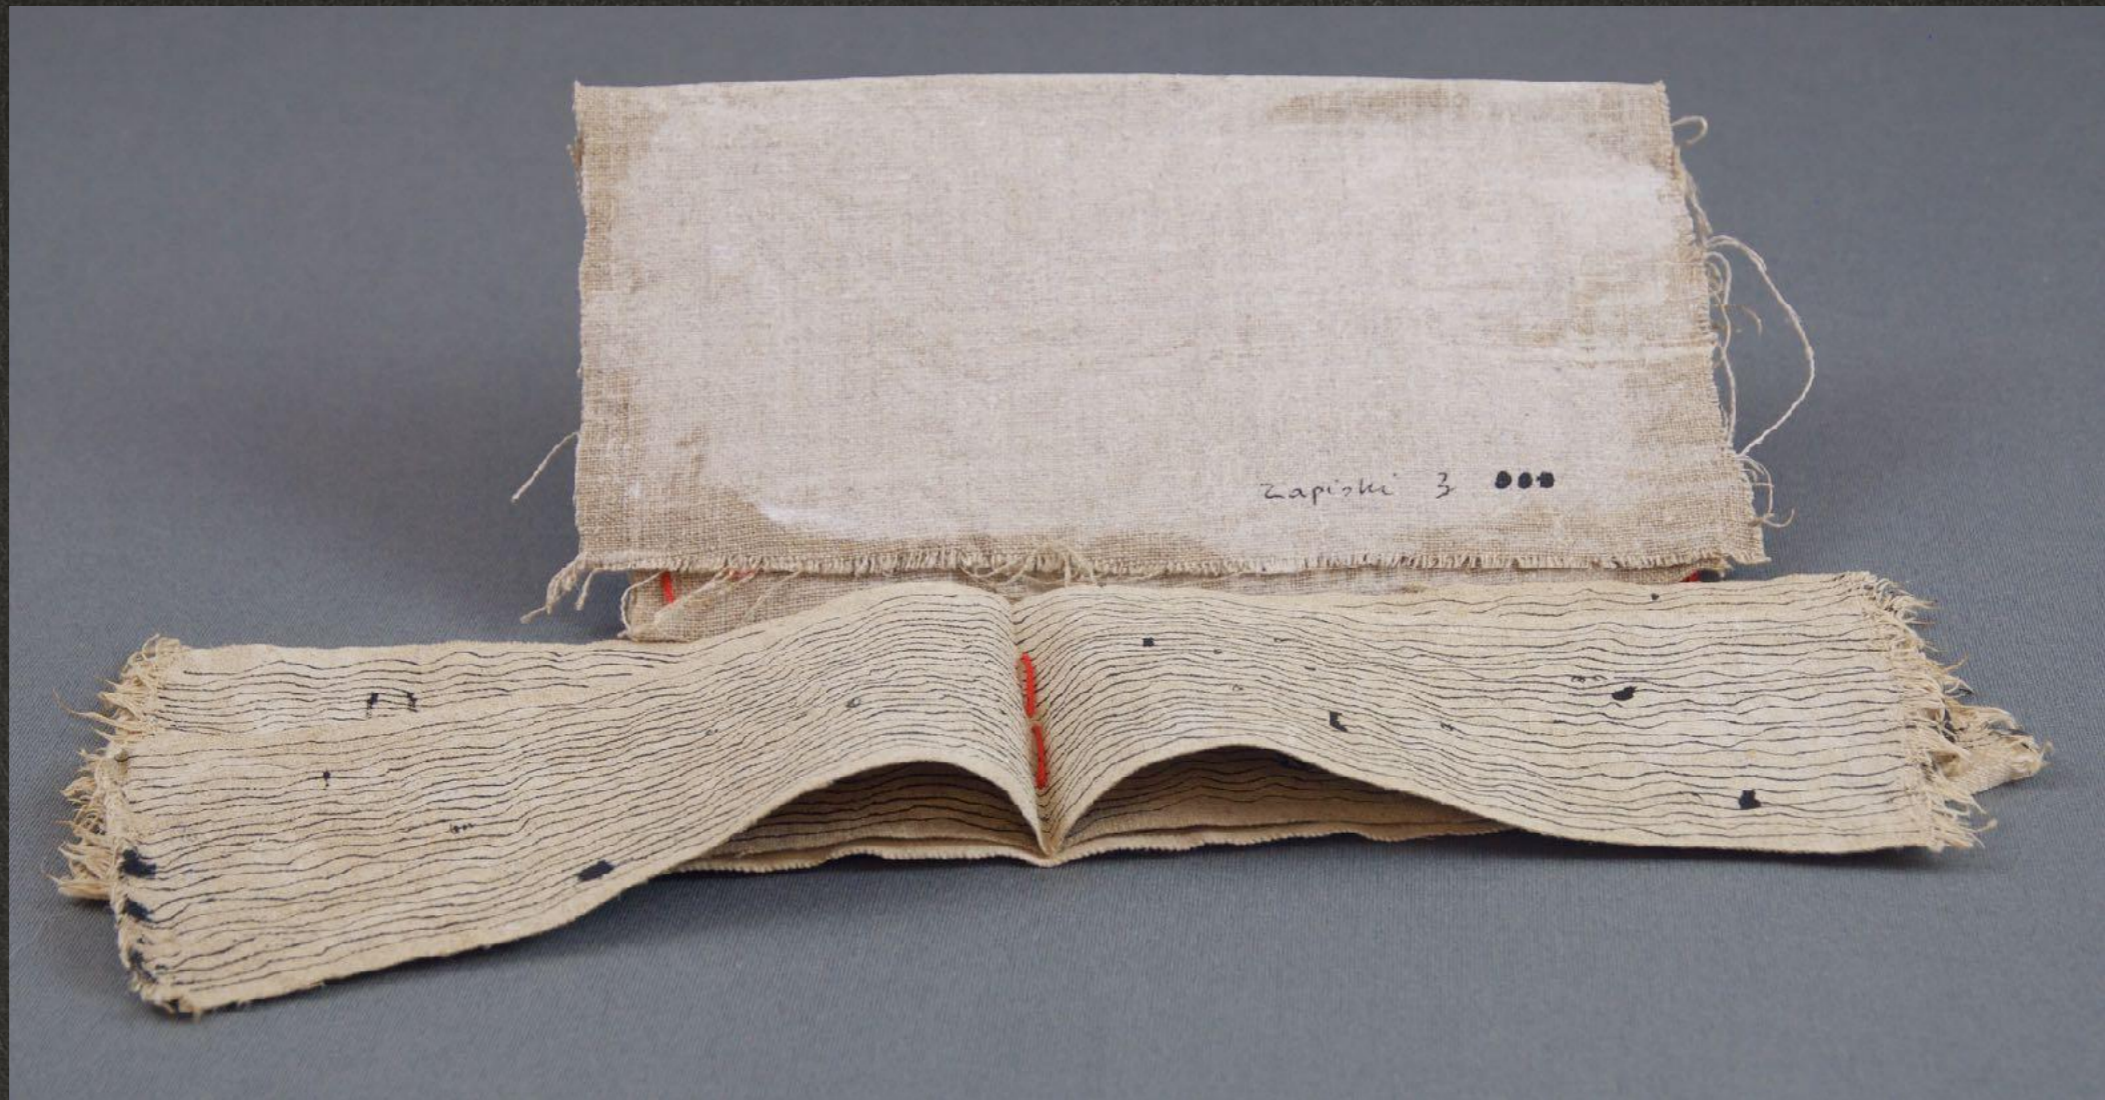 Zapiski 3 •••